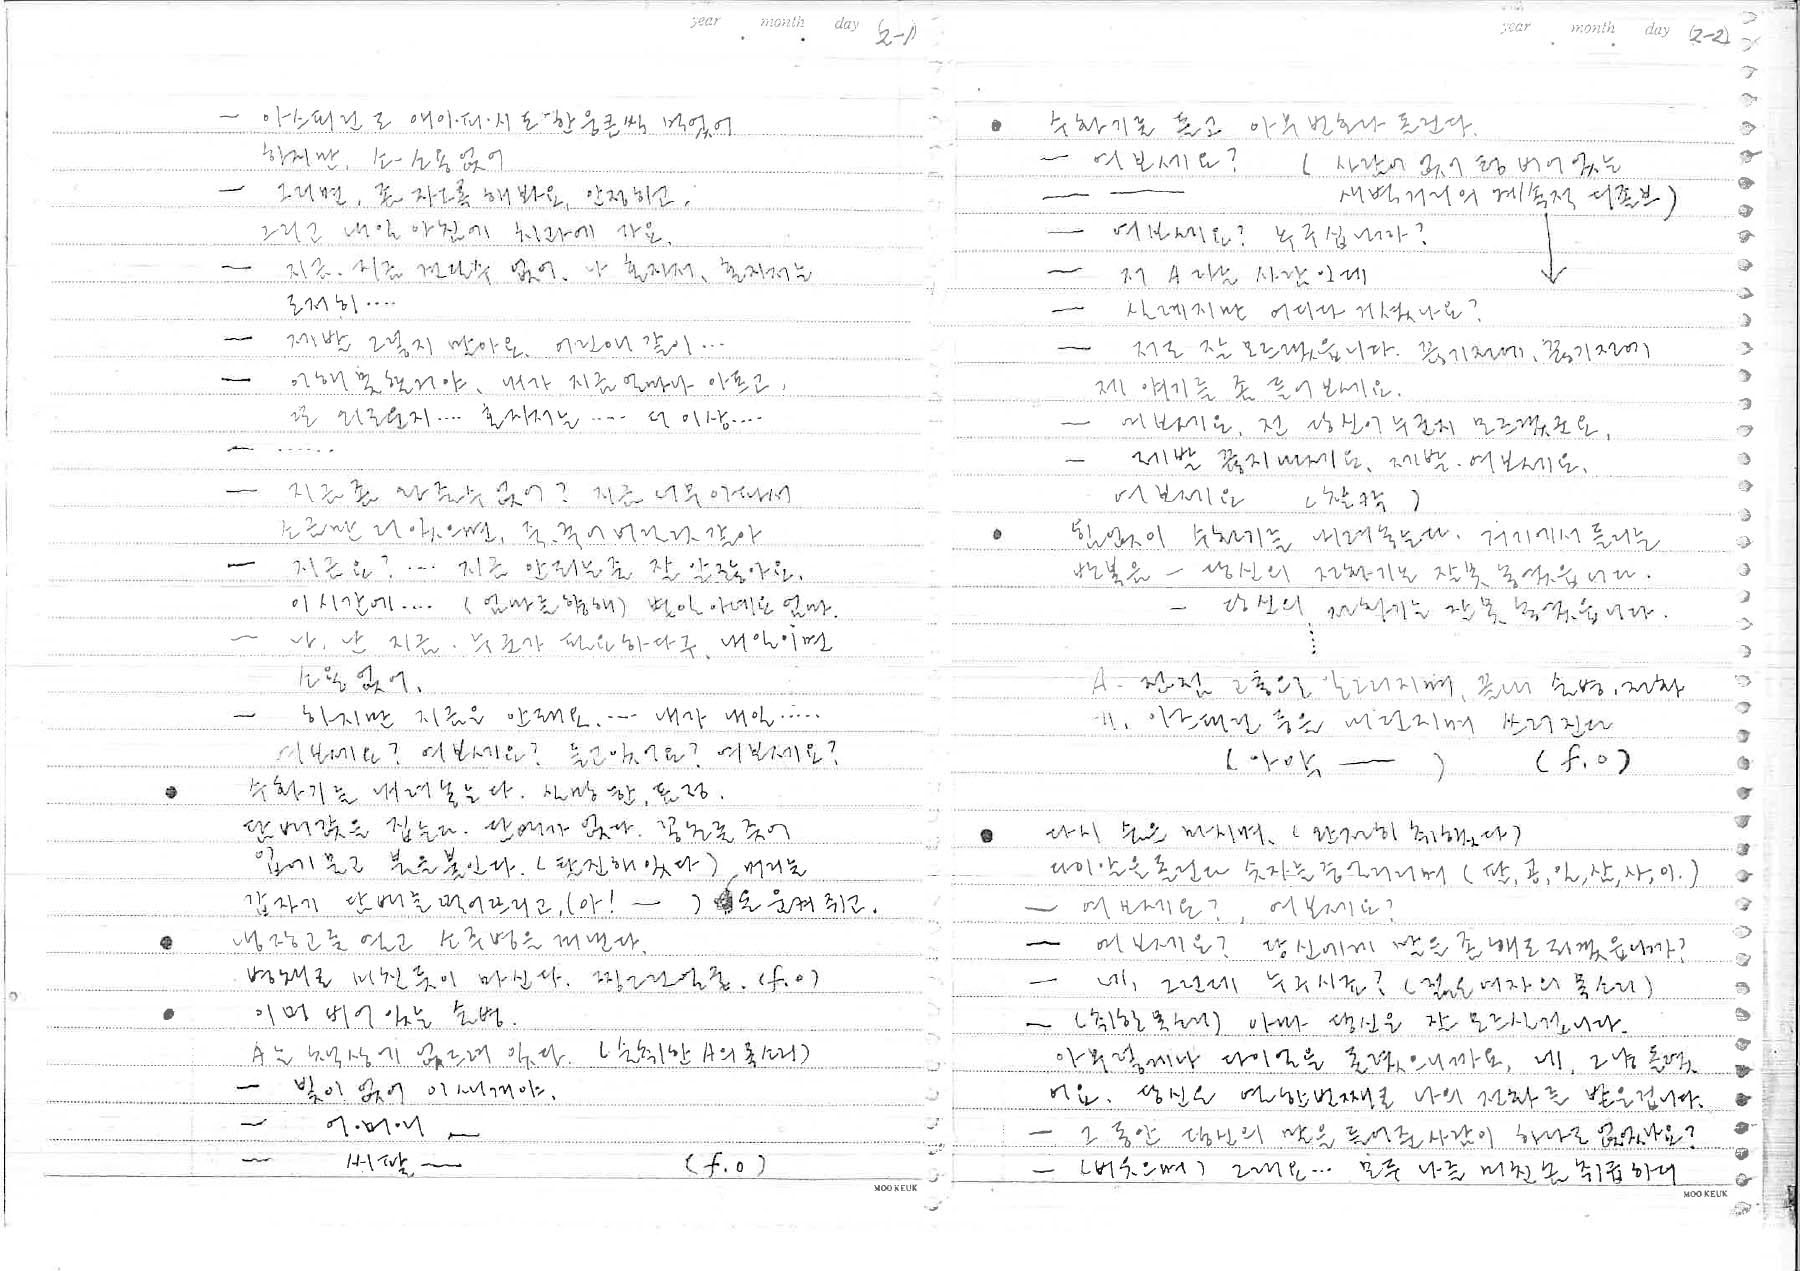 year month day (2-1)
— 아스피린도 에이.피.시도 한웅큼씩 먹었어
하지만, 소- 소용없어
— 그러면, 좀 자도록 해봐요, 안정하고,
그리고 내일 아침에 치과에 가요.
— 지금. 지금 견딜수 없어. 나 혼자서, 혼자서는
도저히....
— 제발 그렇지 말아요. 어린애 같이...
— 이해 못할거야, 내가 지금 얼마나 아프고,
또 괴로운지.... 혼자서는 .... 더 이상....
— ......
— 지금 좀 와줄수 없어? 지금 너무 아파서
조금만 더 있으면, 푹. 죽어버릴것 같아
— 지금요? ... 지금 안되는줄 잘 알잖아요.
이 시간에.... (엄마를 향해) 별일 아녜요 엄마.
— 나, 난 지금. 누군가 필요하다구, 내일이면
소용 없어,
— 하지만 지금은 안돼요. ... 내가 내일.....
여보세요? 여보세요? 듣고있어요? 여보세요?
● 수화기를 내려놓는다. 실망한, 표정.
담배갑을 집는다. 담배가 없다. 꽁초를 주어
입에 물고 불을붙인다. (탈진해있다) 때리는
갑자기 담배를 떨어뜨리고, (아! — ) 을 움켜쥐고.
● 냉장고를 열고 소주병을 꺼낸다.
병째로 미친듯이 마신다. 찡그린얼굴. (f.o)
● 이미 비어 있는 술병.
A는 책상에 엎드려 있다. (술취한 A의 목소리)
— 빛이 없어 이 세계야.
— 어.머.니 —
— 씨팔 — (f.o)
MOO KEUK
year month day (2-2)
● 수화기를 들고 아무 번호나 돌린다.
— 여보세요? ( 사람이 없이 텅 비어 있는
— —— 새벽거리의 계속적 디졸브)
— 여보세요? 누구십니까?
— 저 A 라는 사람인데
— 실례지만 어디다 거셨나요?
— 저도 잘 모르겠습니다. 끊기전에, 끊기전에
제 얘기를 좀 들어보세요.
— 여보세요, 전 당신이 누군지 모르겠군요,
— 제발 끊지마세요, 제발. 여보세요.
여보세요 (찰칵)
● 힘없이 수화기를 내려놓는다. 거기에서 들리는
반복음 — 당신의 전화기는 잘못 놓였습니다.
— 당신의 전화기는 잘못 놓였습니다.
A. 점점 고통으로 일그러지며, 끝내 술병, 전화
기, 아스피린 등은 버려지며 쓰러진다
(아악 — ) (f.o)
● 다시 술을 마시며, (완전히 취했다)
다이알을돌린다 숫자를중얼거리며 (팔,공,일,삼,사,이.)
— 여보세요?, 여보세요?
— 여보세요? 당신에게 말을 좀 해도 되겠습니까?
— 네, 그런데 누구시죠? (젊은여자의 목소리)
— (취한 목소리) 아마 당신은 잘 모르실겁니다.
아무렇게나 다이얼을 돌렸으니까요, 네, 그냥 돌렸
어요. 당신은 열한번째로 나의 전화를 받은겁니다.
— 그 동안 당신의 말을 들어준사람이 하나도 없었나요?
— (비웃으며) 그래요... 모두 나를 미친놈 취급하더
MOO KEUK